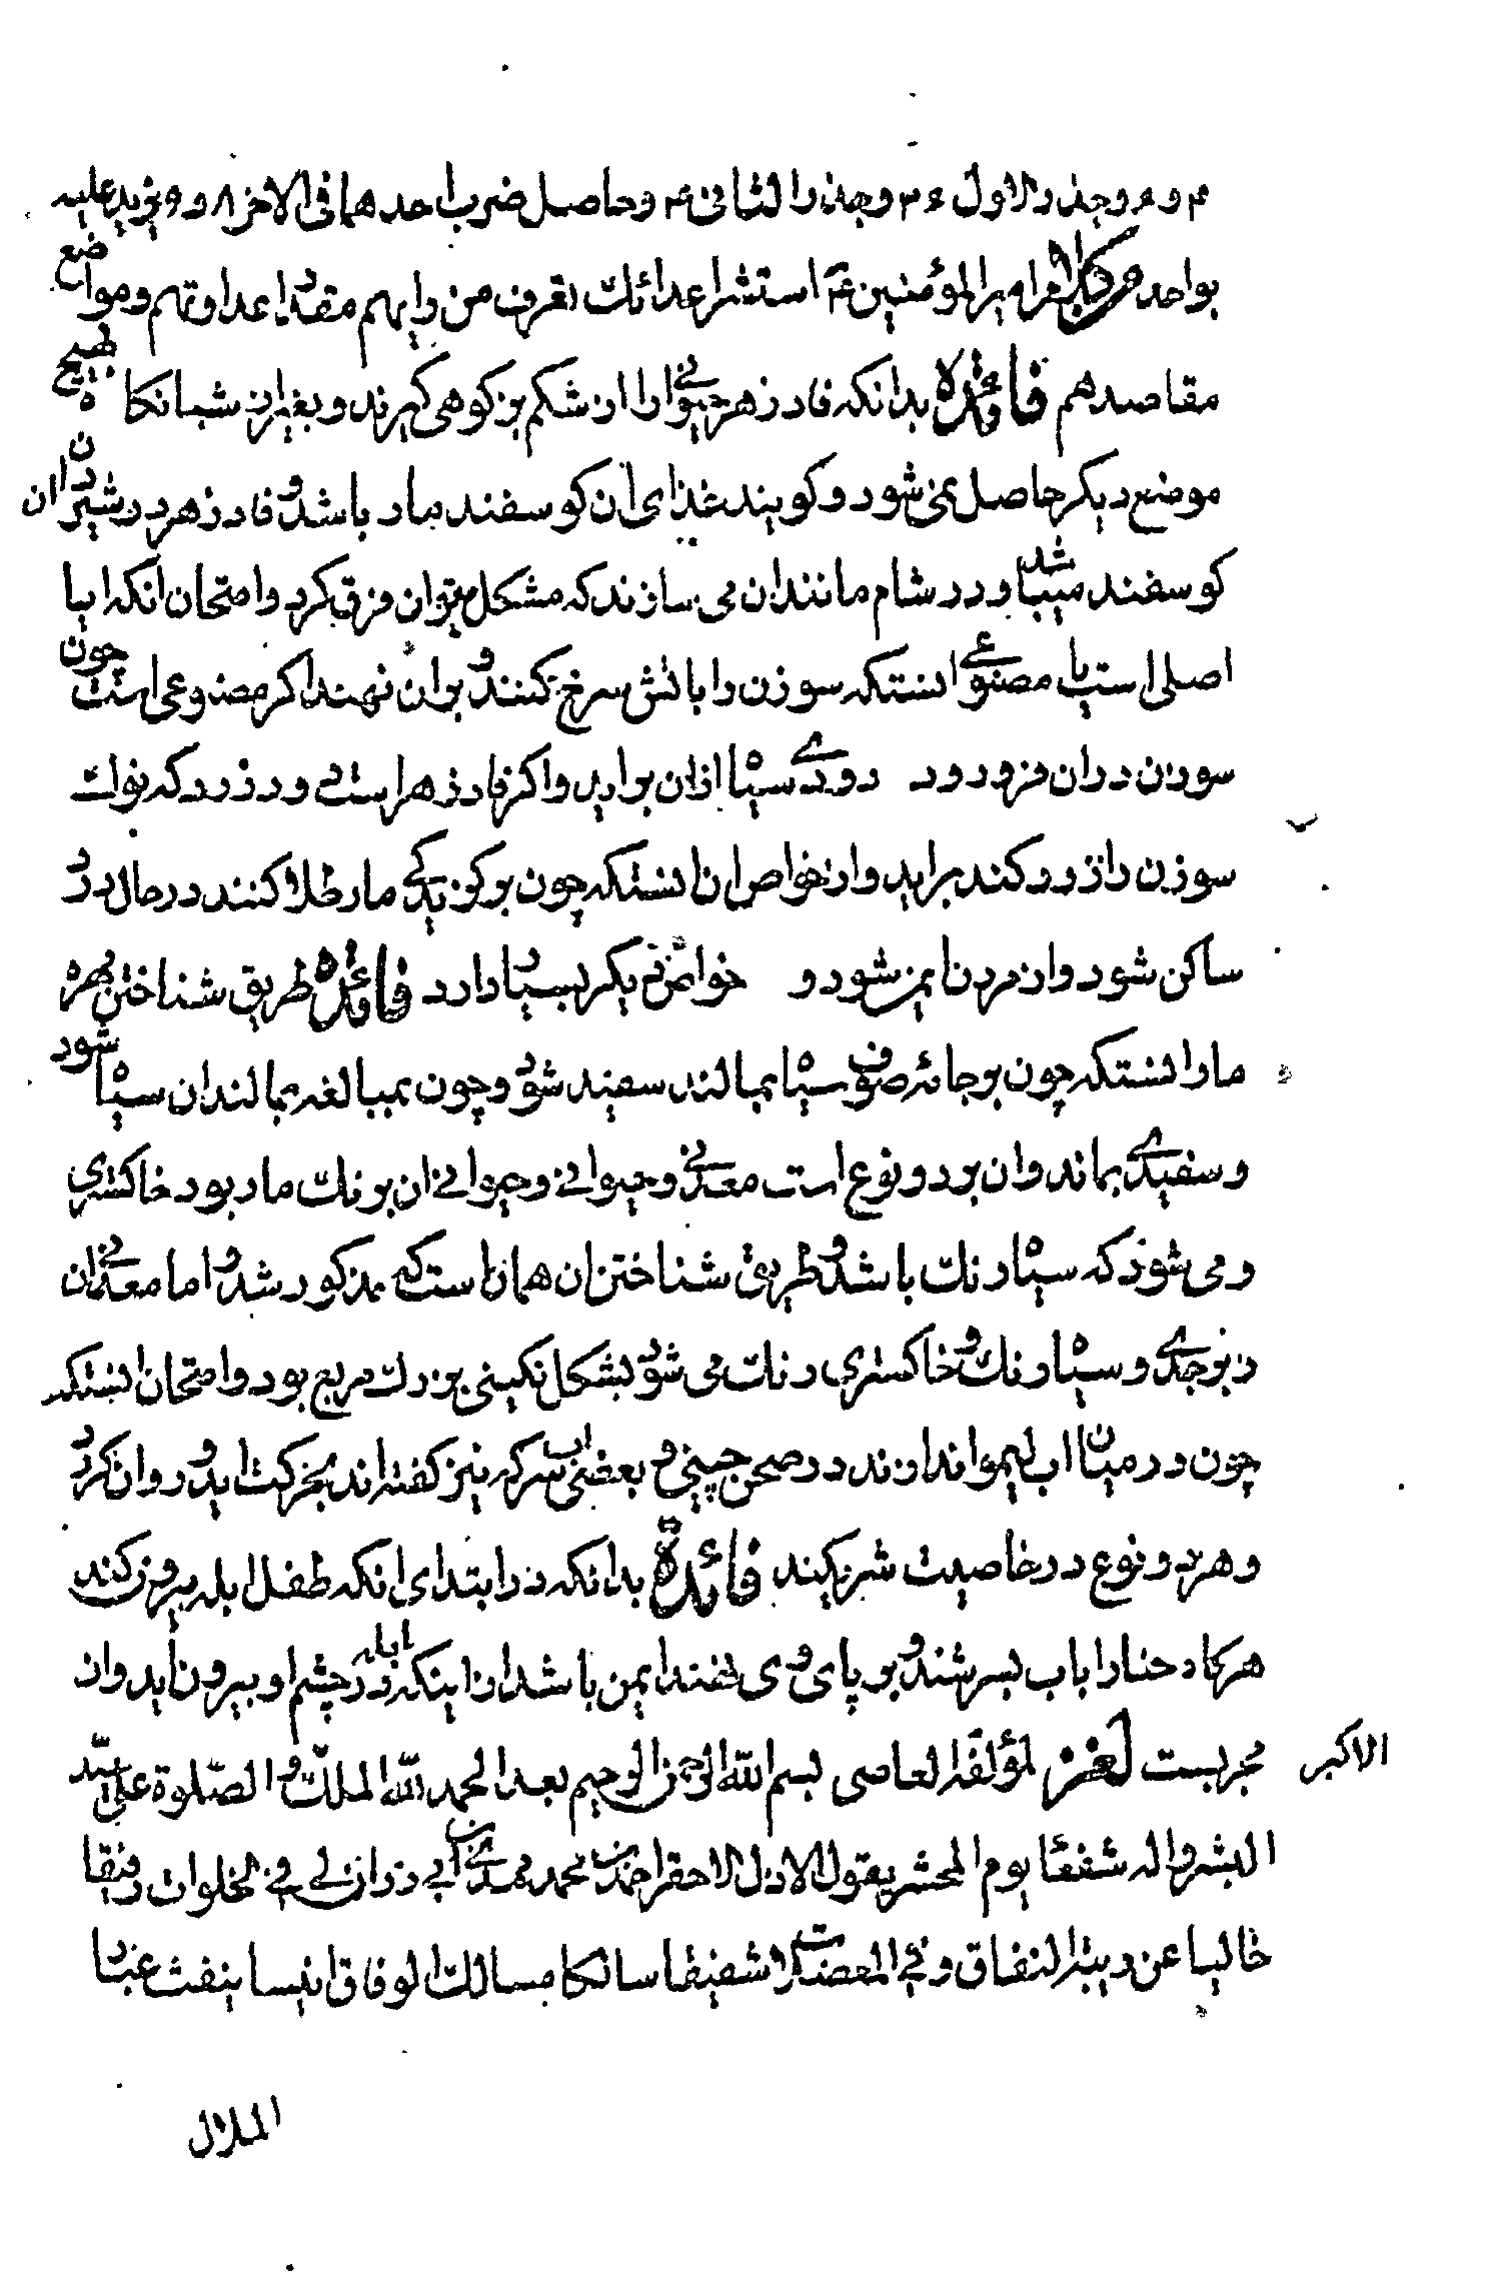 ۴ و ۹ وجذر الاول ۲ و ۳ وجذر الثانی ۴ وحاصل ضرب احدهما فی الاخر ۸ و ۹ یزید علیه
بواحد من کلام امیر المؤمنین ع استشر اعدائك تعرف من رایهم مقدار عداوتهم ومواضع
مقاصدهم فائده بدانکه فادزهر حیوانی را از شکم بز کوهی گیرند و بغیر از شبانکاره هیچ
موضع دیگر حاصل نمی شود و کویند غذای آن کوسفند مار باشد و فادزهر در شیردان ان
کوسفند میباشد و در شام مانند ان می سازند که مشکل توان فرق کرد و امتحان انکه ایا
اصلی است یا مصنوعی انستکه سوزن را باتش سرخ کنند و بران نهند اکر مصنوعی است چون
سوزن دران فرو رود دودی سیاه ازان براید و اکر فادزهر است دود زرد که نوك
سوزن را زرد کند براید و از خواص ان انستکه چون بر کزیدکی مار طلا کنند در حال درد
ساکن شود و از مردن ایمن شود و خواص دیکر بسیار دارد فائده طریق شناختن مهره
مار انستکه چون بر جامه صوف سیاه بمالند سفید شود و چون بمبالغه بمالند ان سیاه شود
و سفیدی بماند وان بر دو نوع است معدنی و حیوانی و حیوانی ان برنك مار بود خاکستری
و می شود که سیاه رنك باشد و طریق شناختن ان همانست که مذکور شد و اما معدنی ان
زبرجدی و سیاه رنك و خاکستری رنك می شود بشکل نکینی بزرك مربع بود و امتحان انستکه
چون در میان اب لیمو اندازند در صحن چینی و بعضی اب سرکه نیز کفته اند بحرکت اید و روان کردد
و هر دو نوع در خاصیت شریکند فائدة بدانکه در ابتدای انکه طفل ابله بیرون کند
هرکاه حنا را باب بسرشند و بر پای وی نهند ایمن باشد از اینکه ابله در چشم او بیرون اید وان
مجربست لغز لمؤلفه العاصی بسم الله الرحمن الرحیم بعد الحمد لله الملك الاکبر و الصلوة علی سید
البشر و اله شفعا یوم المحشر یقول الاذل الاحقر احمد بن محمد مهدی بن ابی ذر ان لی فی الخلوات رفیقا
خالیا عن ریبة النفاق و فی المعضلات شفیقا سالکا مسالك الوفاق انیسا ینفث غبار
الملال